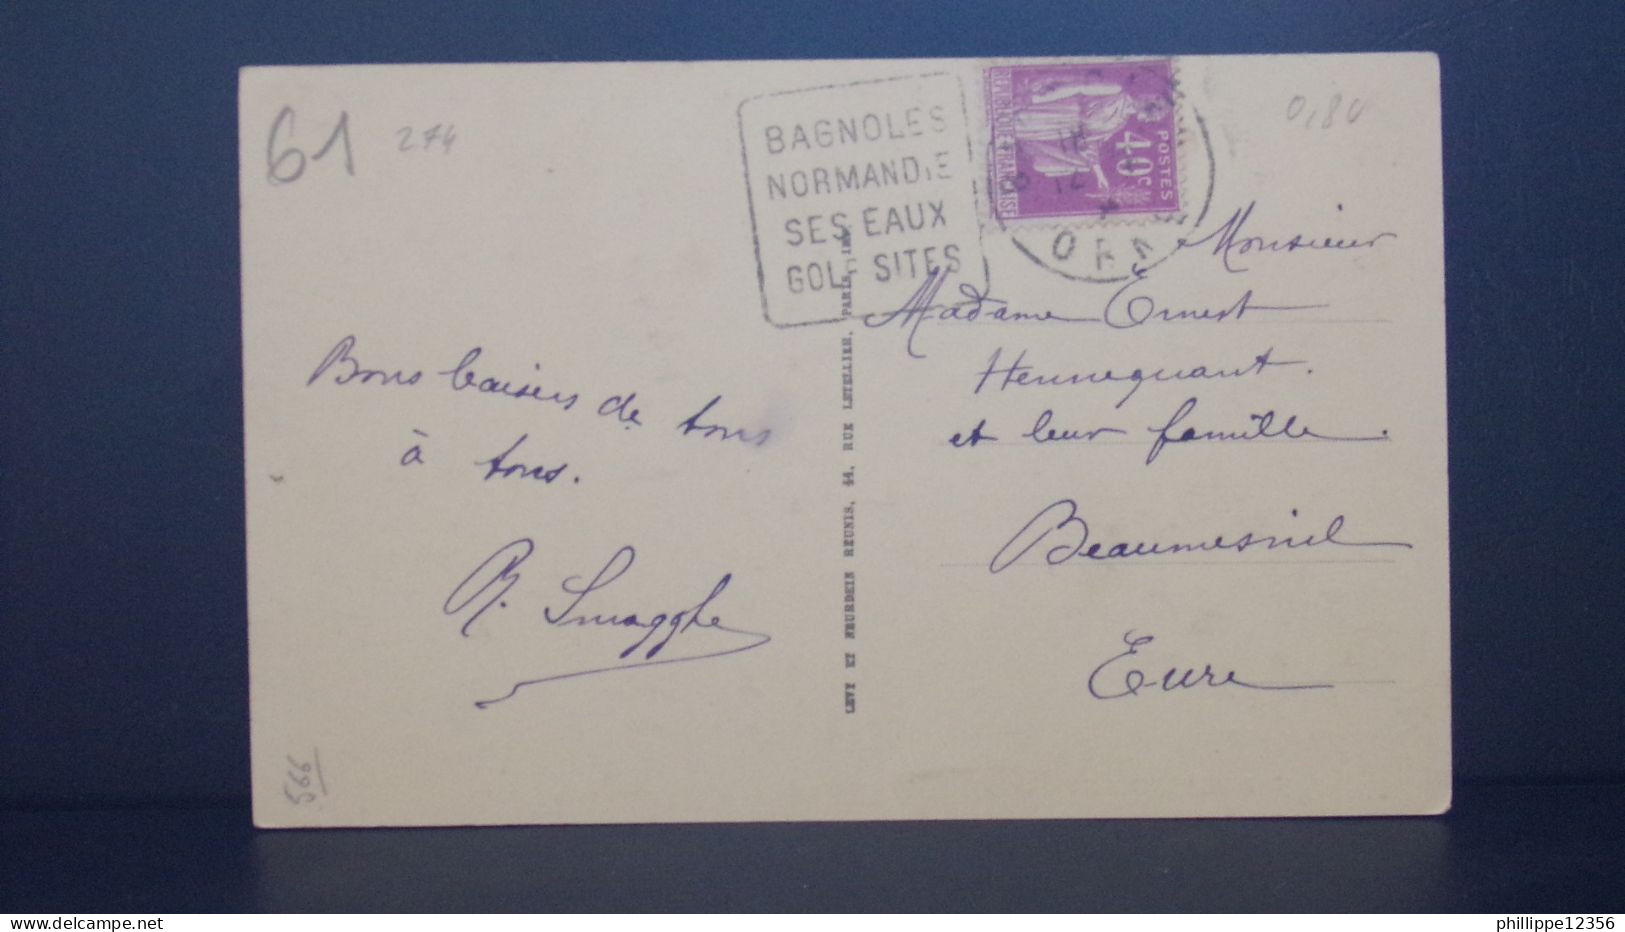 61
274
0,80
BAGNOLES
NORMANDIE
SES EAUX
GOL SITES
REPUBLIQUE FRANCAISE
POSTES
40c
Bons baisers de tous
à tous.
R. Smagghe
566
LEVY ET NEURDEIN REUNIS, 44, RUE LETELLIER, PARIS, IMP.
Monsieur
Madame Ernest
Hennequant.
et leur famille.
Beaumesnil
Eure
www.delcampe.net
philippe12356